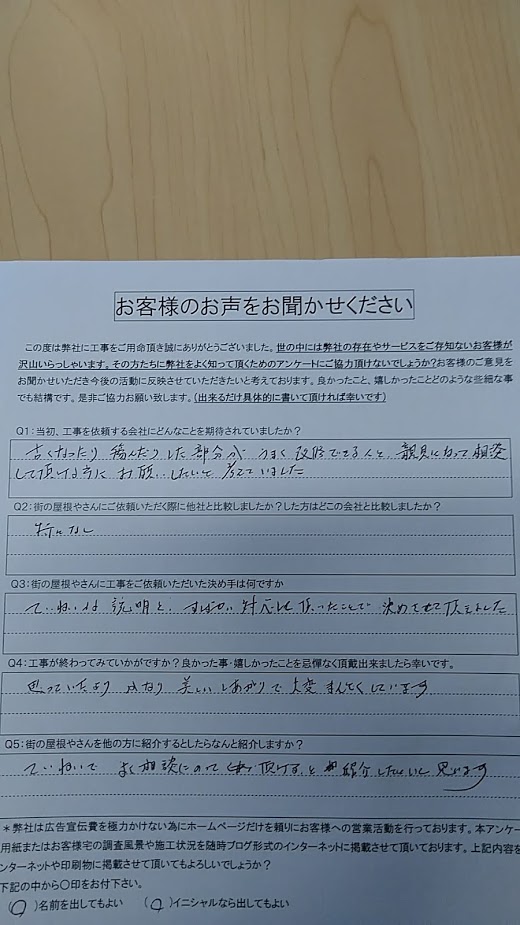 お客様のお声をお聞かせください
この度は弊社に工事をご用命頂き誠にありがとうございました。世の中には弊社の存在やサービスをご存知ないお客様が
沢山いらっしゃいます。その方たちに弊社をよく知って頂くためのアンケートにご協力頂けないでしょうか?お客様のご意見を
お聞かせいただき今後の活動に反映させていただきたいと考えております。良かったこと、嬉しかったことどのような些細な事
でも結構です。是非ご協力お願い致します。(出来るだけ具体的に書いて頂ければ幸いです)
Q1:当初、工事を依頼する会社にどんなことを期待されていましたか?
古くなったり 痛んだりした部分が うまく 改修できる人と、親身になって相談
して頂ける方に お願いしたいと 考えていました
Q2:街の屋根やさんにご依頼いただく際に他社と比較しましたか?した方はどこの会社と比較しましたか?
特になし
Q3:街の屋根やさんに工事をご依頼いただいた決め手は何ですか
ていねいな 説明と、すばやい 対応して頂いたことで 決めさせて頂きました
Q4:工事が終わってみていかがですか?良かった事・嬉しかったことを忌憚なく頂戴出来ましたら幸いです。
思っていたより かなり 美しい しあがりで 大変 まんぞくしています
Q5:街の屋根やさんを他の方に紹介するとしたらなんと紹介しますか?
ていねいで よく相談にのって 頂けると 紹介したいと 思います
*弊社は広告宣伝費を極力かけない為にホームページだけを頼りにお客様への営業活動を行っております。本アンケ
用紙またはお客様宅の調査風景や施工状況を随時ブログ形式のインターネットに掲載させて頂いております。上記内容を
ンターネットや印刷物に掲載させて頂いてもよろしいでしょうか?
下記の中から〇印をお付下さい。
(〇)名前を出してもよい (〇)イニシャルなら出してもよい